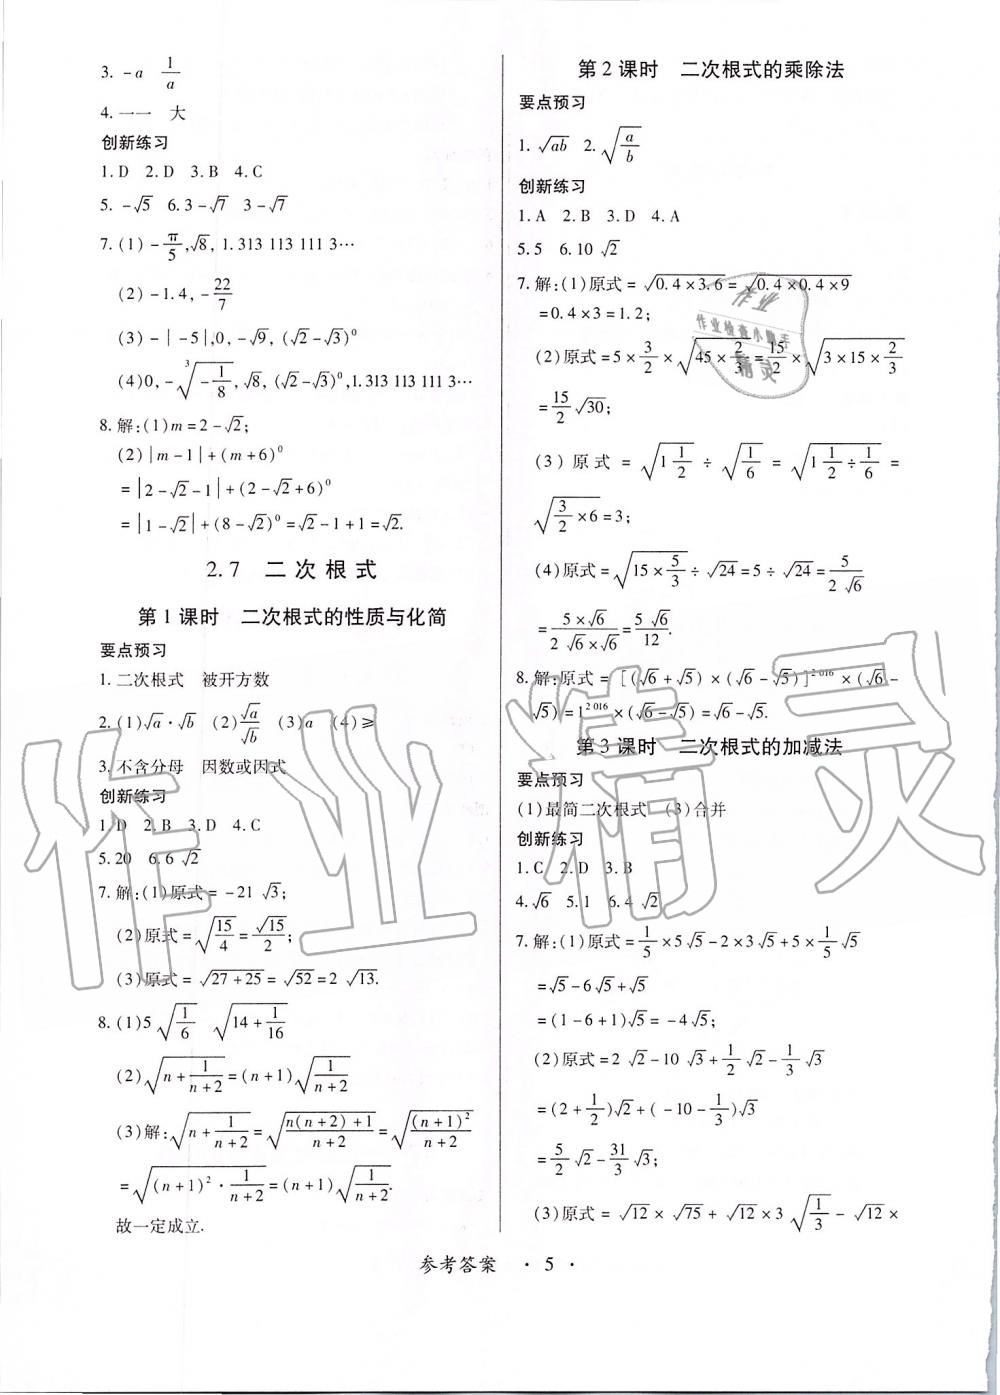 3. -a  1/a
4. 一一  大
创新练习
1. D  2. D  3. B  4. C
5. -√5  6. 3-√7  3-√7
7. (1) -π/5, √8, 1.313 113 111 3…
(2) -1.4, -22/7
(3) -|-5|, 0, -√9, (√2-√3)⁰
(4) 0, -∛(-1/8), √8, (√2-√3)⁰, 1.313 113 111 3…
8. 解:(1) m=2-√2;
(2) |m-1|+(m+6)⁰
=|2-√2-1|+(2-√2+6)⁰
=|1-√2|+(8-√2)⁰=√2-1+1=√2.
2.7 二次根式
第1课时 二次根式的性质与化简
要点预习
1. 二次根式  被开方数
2. (1)√a·√b  (2)√a/√b  (3)a  (4)≥
3. 不含分母  因数或因式
创新练习
1. D  2. B  3. D  4. C
5. 20  6. 6√2
7. 解:(1)原式=-21√3;
(2)原式=√(15/4)=√15/2;
(3)原式=√(27+25)=√52=2√13.
8. (1)5√(1/6)  √(14+1/16)
(2)√(n+1/(n+2))=(n+1)√(1/(n+2))
(3)解:√(n+1/(n+2))=√((n(n+2)+1)/(n+2))=√((n+1)²/(n+2))
=√((n+1)²·1/(n+2))=(n+1)√(1/(n+2)).
故一定成立.
第2课时 二次根式的乘除法
要点预习
1. √(ab)  2. √(a/b)
创新练习
1. A  2. B  3. D  4. A
5. 5  6. 10√2
7. 解:(1)原式=√(0.4×3.6)=√(0.4×0.4×9)
=0.4×3=1.2;
(2)原式=5×3/2×√(45×2/3)=15/2×√(3×15×2/3)
=15/2√30;
(3)原式=√(1 1/2)÷√(1/6)=√(1 1/2÷1/6)=
√(3/2×6)=3;
(4)原式=√(15×5/3)÷√24=5÷√24=5/(2√6)
=(5×√6)/(2√6×√6)=5√6/12.
8. 解:原式=[(√6+√5)×(√6-√5)]²⁰¹⁶×(√6-
√5)=1²⁰¹⁶×(√6-√5)=√6-√5.
第3课时 二次根式的加减法
要点预习
(1)最简二次根式  (3)合并
创新练习
1. C  2. D  3. B
4. √6  5. 1  6. 4√2
7. 解:(1)原式=1/5×5√5-2×3√5+5×1/5√5
=√5-6√5+√5
=(1-6+1)√5=-4√5;
(2)原式=2√2-10√3+1/2√2-1/3√3
=(2+1/2)√2+(-10-1/3)√3
=5/2√2-31/3√3;
(3)原式=√12×√75+√12×3√(1/3)-√12×
参考答案 · 5 ·
作业精灵
作业
作业检查小助手
精灵